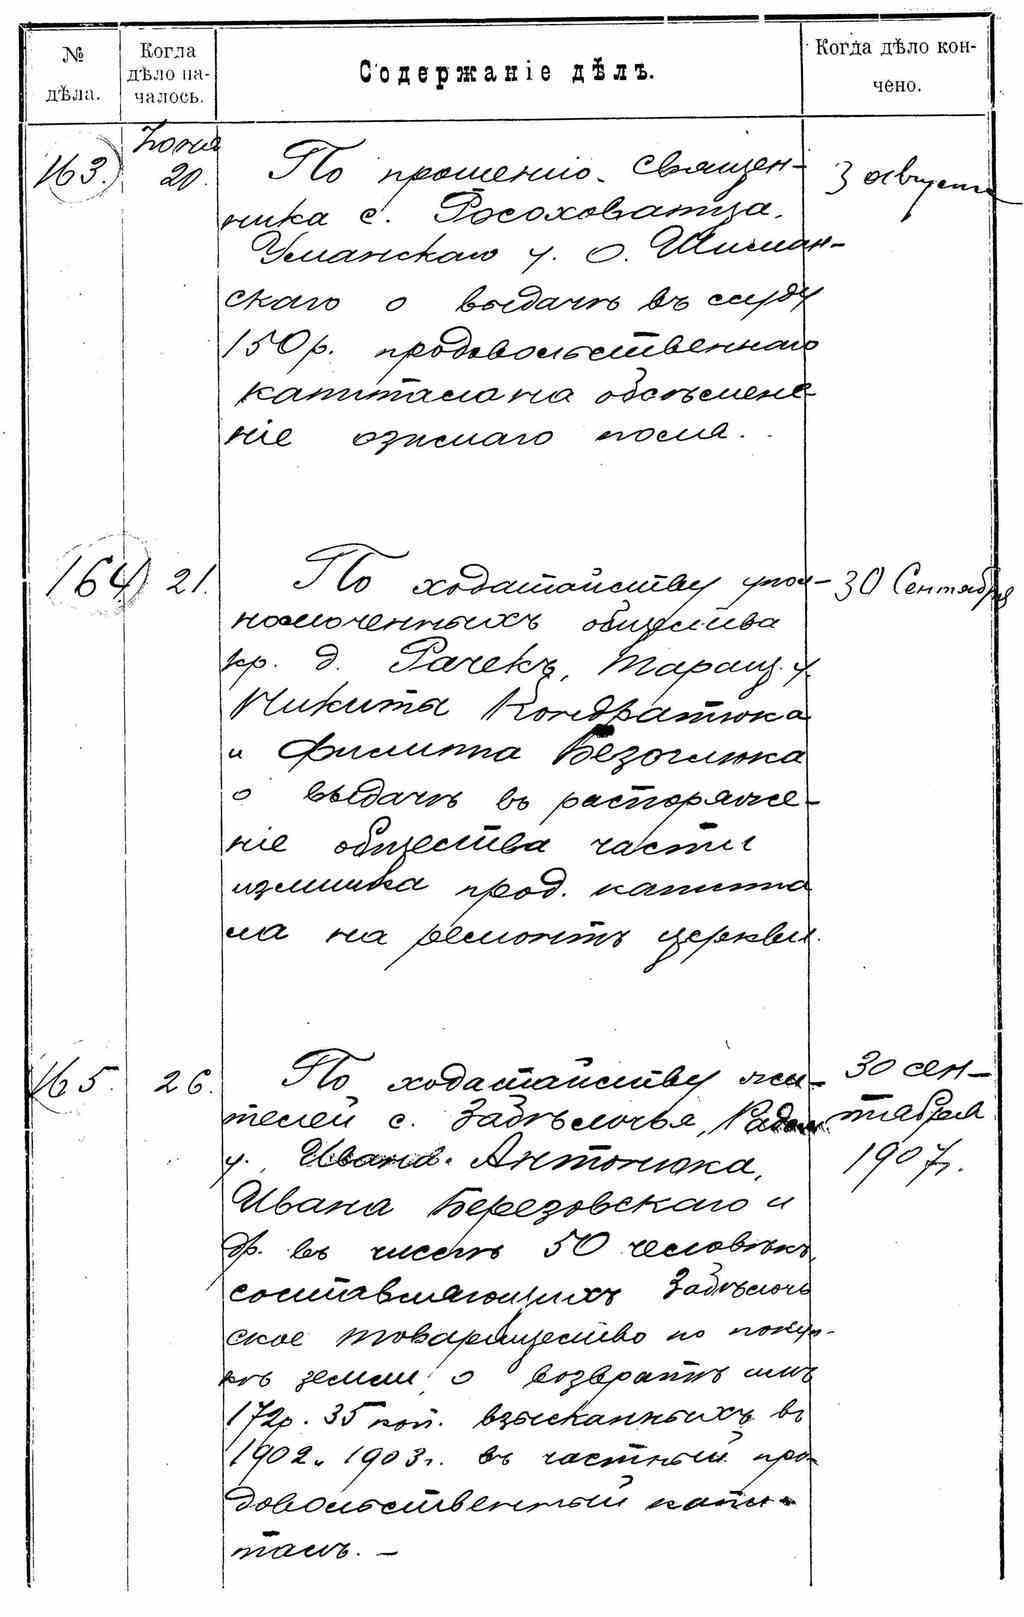 № дѣла.
Когда дѣло началось.
Содержаніе дѣлъ.
Когда дѣло кончено.
163.
Іюня
20.
По прошенію священ-
ника с. Росоховатца,
Уманскаго у. О. Шиман-
скаго о выдачѣ въ ссуду
150 р. продовольственнаго
капитала на обсѣмене-
ніе озимаго поля.
3 августа
164)
21.
По ходатайству упол-
номоченныхъ общества
кр. д. Рачекъ, Таращ. у.
Никиты Кондратюка
и Филиппа Безоглюка
о выдачѣ въ распоряже-
ніе общества части
излишка прод. капита
ла на ремонтъ церкви.
30 Сентября
165.
26.
По ходатайству жи-
телей с. Забѣлочья, Радом.
у. Ивана Антонюка,
Ивана Березовскаго и
др. въ числѣ 50 человѣкъ,
составляющихъ Забѣлоч
ское товарищество по покуп-
кѣ земли, о возвратѣ имъ
172 р. 35 коп. взысканныхъ въ
1902 и 1903 г. въ частный про-
довольственный капи-
талъ. —
30 сен-
тября
1907 г.